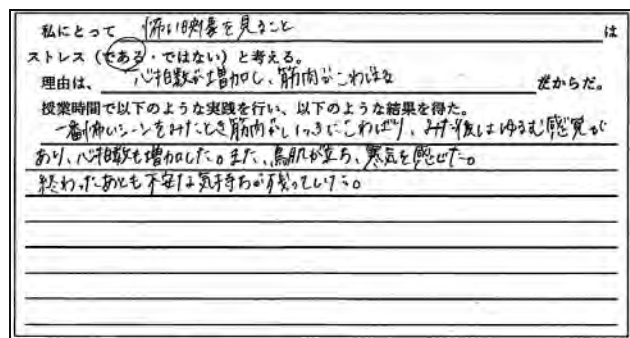 私にとって 怖い映像を見ること は
ストレス（である・ではない）と考える。
理由は、 心拍数が増加し、筋肉がこわばる だからだ。
授業時間で以下のような実践を行い、以下のような結果を得た。
一番怖いシーンをみたとき筋肉がいっきにこわばり、みた後はゆるむ感覚が
あり、心拍数も増加した。また、鳥肌が立ち、寒気を感じた。
終わったあとも不安な気持ちが残っている。